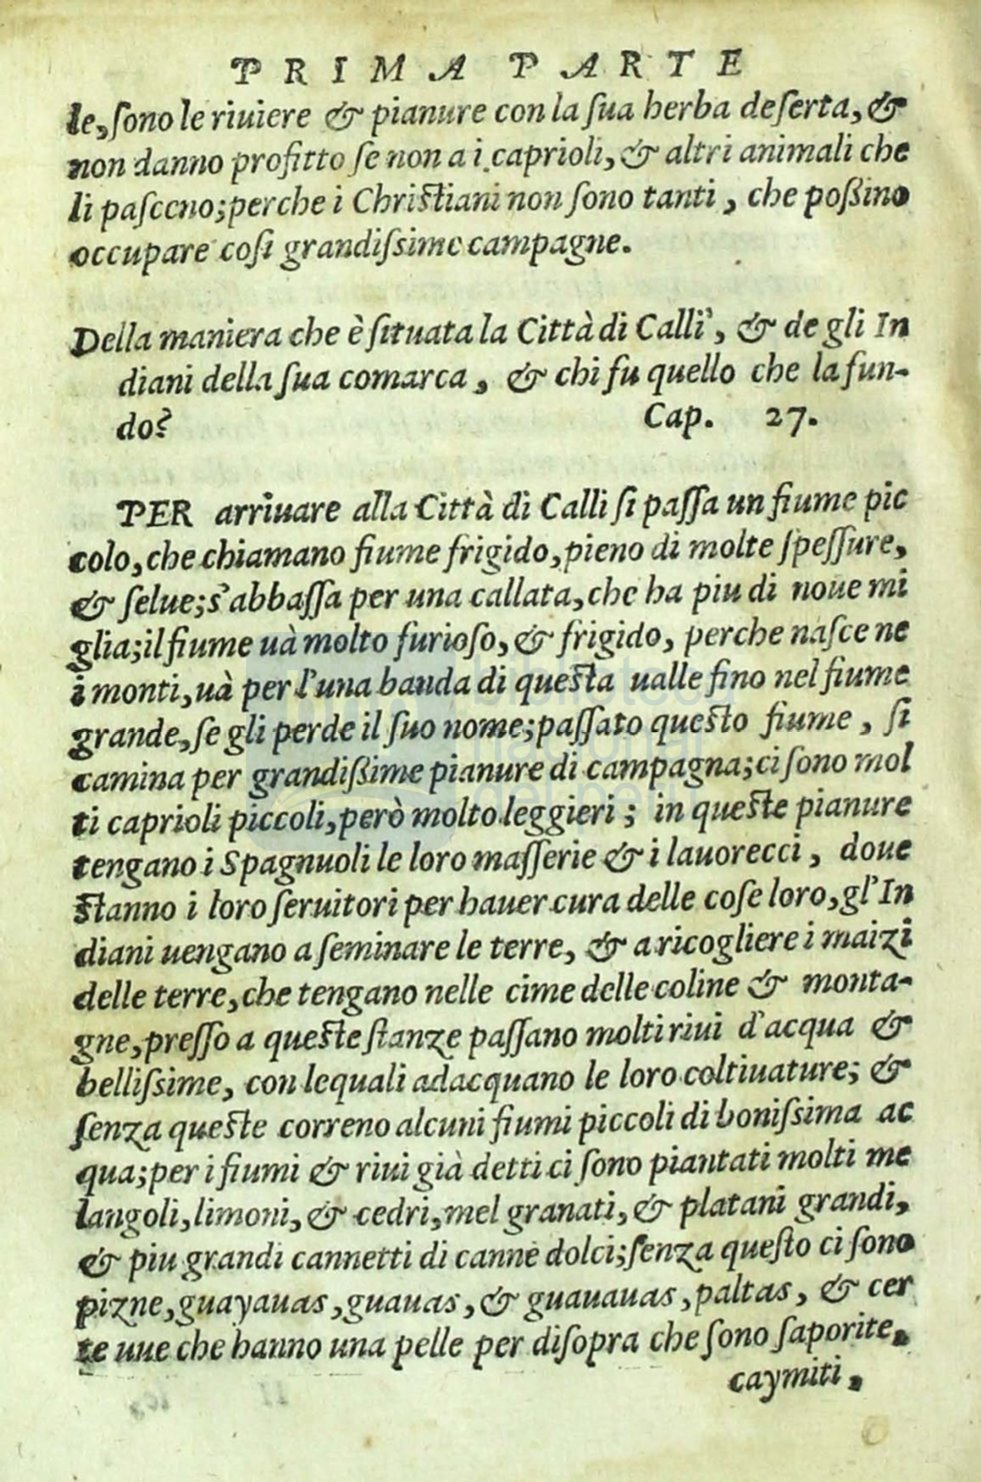 PRIMA PARTE
le, ſono le riuiere & pianure con la ſua herba deſerta, &
non danno profitto ſe non a i caprioli, & altri animali che
li paſcono; perche i Chriſtiani non ſono tanti, che poßino
occupare coſi grandiſsime campagne.
Della maniera che è ſituata la Città di Calli, & de gli In
diani della ſua comarca, & chi fu quello che la fun-
dò? Cap. 27.
PER arriuare alla Città di Calli ſi paſſa un fiume pic
colo, che chiamano fiume frigido, pieno di molte ſpeſſure,
& ſelue; s'abbaſſa per una callata, che ha piu di noue mi
glia; il fiume uà molto furioſo, & frigido, perche naſce ne
i monti, uà per l'una banda di queſta ualle fino nel fiume
grande, ſe gli perde il ſuo nome; paſſato queſto fiume, ſi
camina per grandißime pianure di campagna; ci ſono mol
ti caprioli piccoli, però molto leggieri; in queſte pianure
tengano i Spagnuoli le loro maſſerie & i lauorecci, doue
ſtanno i loro ſeruitori per hauer cura delle coſe loro, gl'In
diani uengano a ſeminare le terre, & a ricogliere i maizi
delle terre, che tengano nelle cime delle coline & monta-
gne, preſſo a queſte ſtanze paſſano molti riui d'acqua &
belliſsime, con lequali adacquano le loro coltiuature; &
ſenza queſte correno alcuni fiumi piccoli di boniſsima ac
qua; per i fiumi & riui già detti ci ſono piantati molti me
langoli, limoni, & cedri, mel granati, & platani grandi,
& piu grandi cannetti di canne dolci; ſenza queſto ci ſono
pizne, guayauas, guauas, & guauauas, paltas, & cer
te uue che hanno una pelle per diſopra che ſono ſaporite,
caymiti,
biblioteca
nacional
del perú